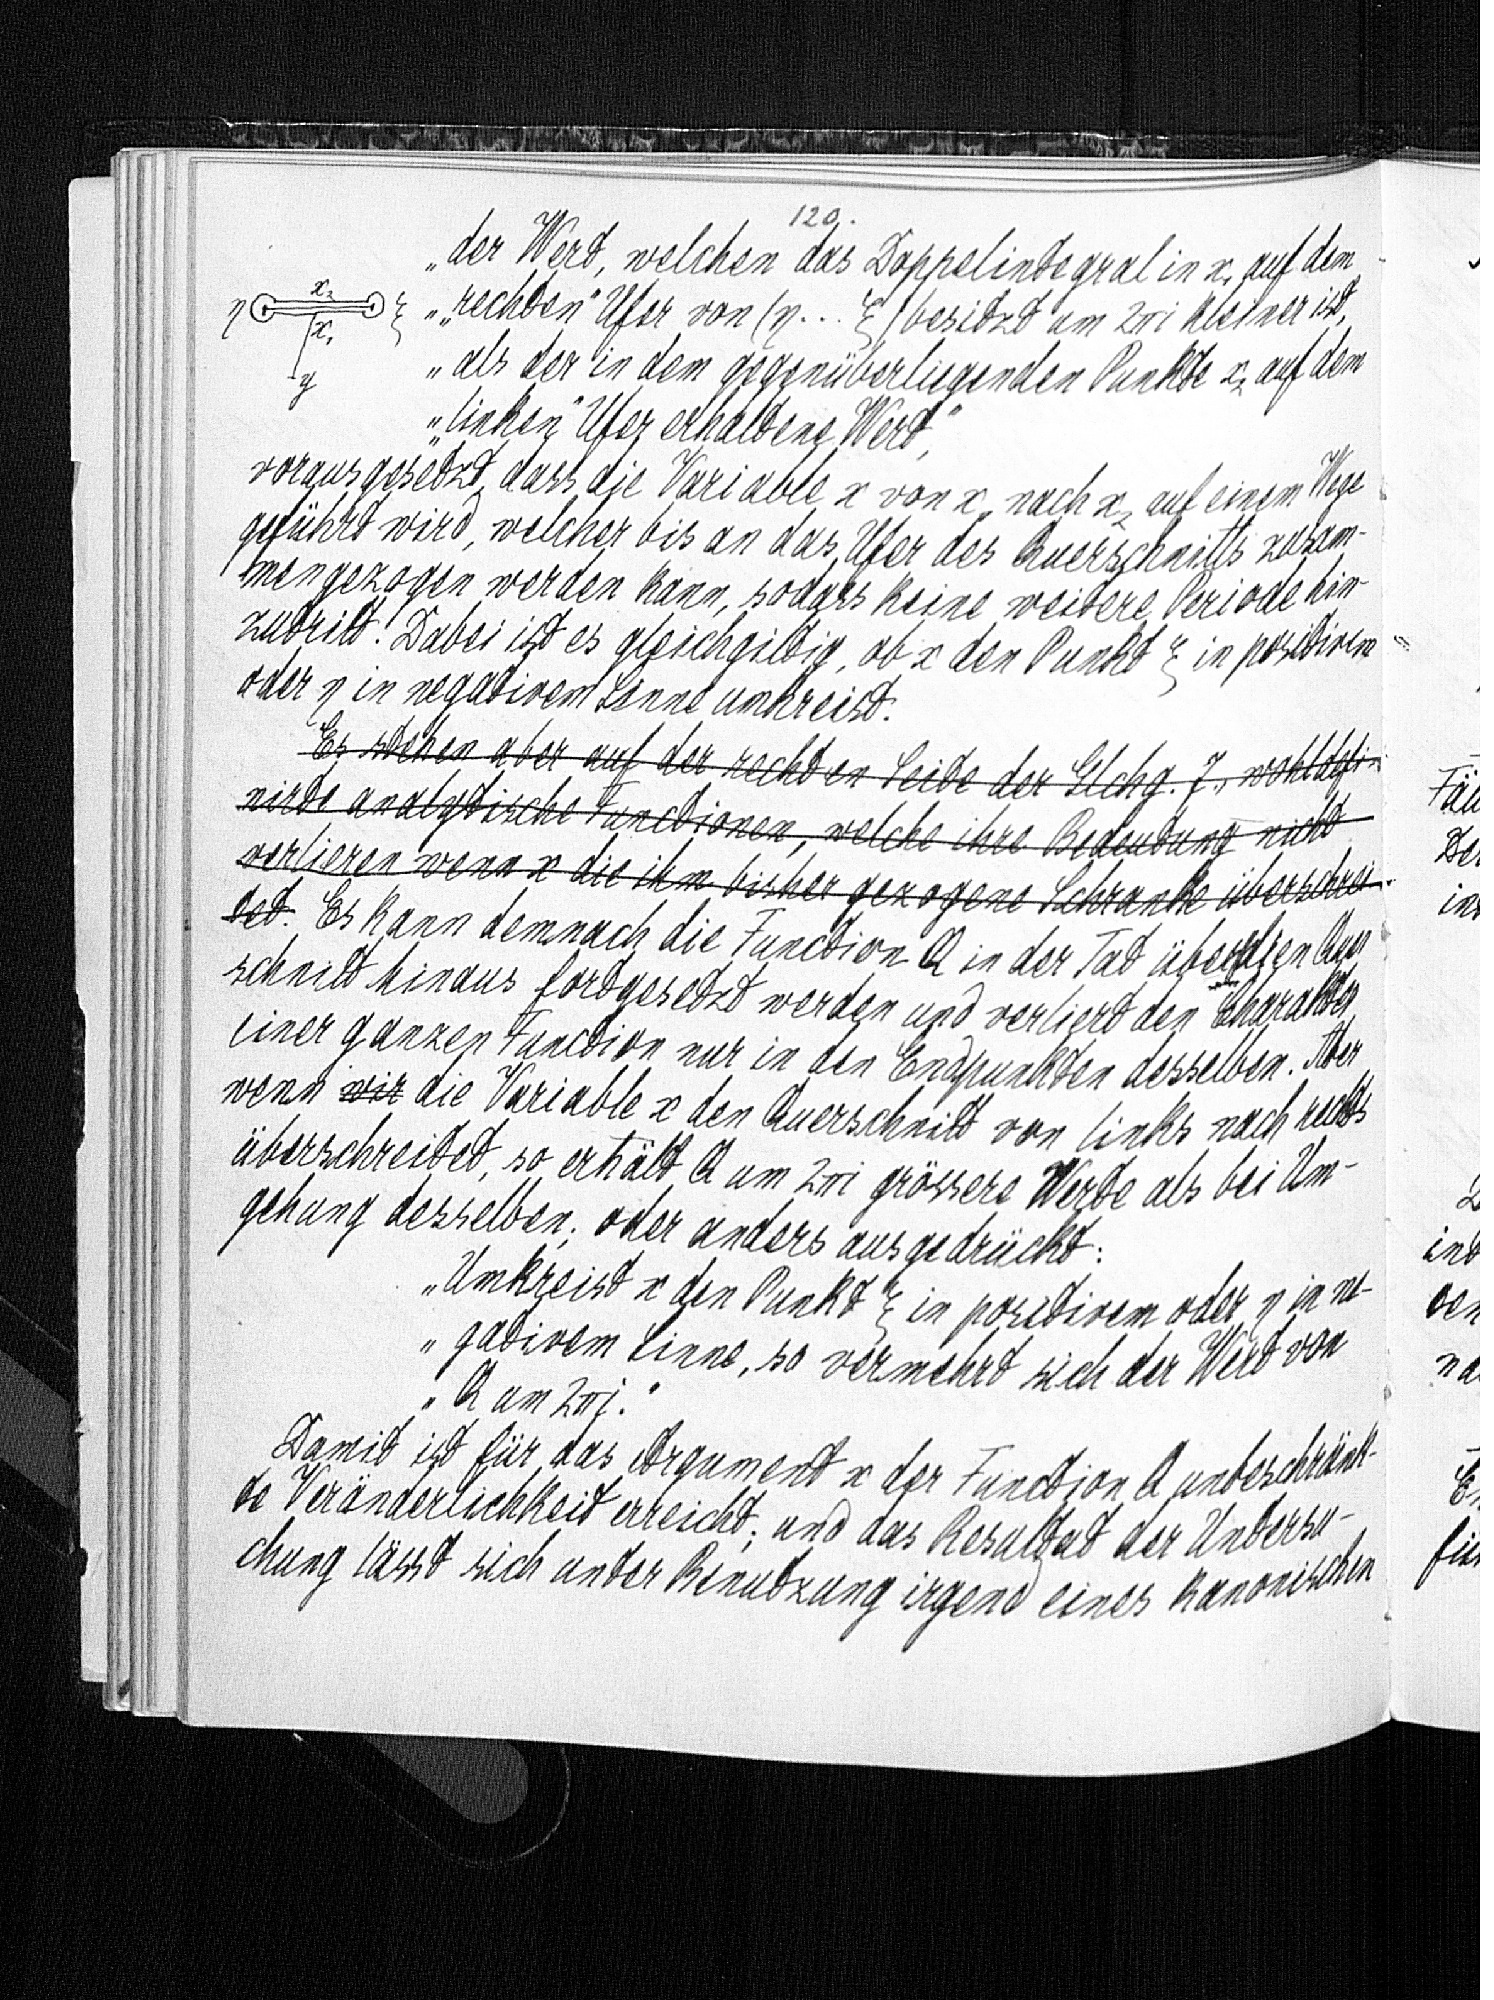 120.
„der Wert, welchen das Doppelintegral in x₁ auf dem
„„rechten" Ufer von (η... ξ) besitzt um 2πi kleiner ist,
„als der in dem gegenüberliegenden Punkte x₂ auf dem
„„linken" Ufer erhaltene Wert,"
η x₂ ξ
x₁
y
vorausgesetzt, dass die Variable x von x₁ nach x₂ auf einem Wege
geführt wird, welcher bis an das Ufer des Querschnitts zusam-
mengezogen werden kann, sodass keine weitere Periode hin-
zutritt. Dabei ist es gleichgiltig, ob x den Punkt ξ in positivem
oder η in negativem Sinne umkreist.
Es stehen aber auf der rechten Seite der Glchg. 7., wohldefi-
nirte analytische Functionen, welche ihre Bedeutung nicht
verlieren wenn x die ihm bisher gezogene Schranke überschrei-
tet. Es kann demnach die Function Q in der Tat über den Quer
schnitt hinaus fortgesetzt werden und verliert den Charakter
einer ganzen Function nur in den Endpunkten desselben. Aber
wenn wir die Variable x den Querschnitt von links nach rechts
überschreitet, so erhält Q um 2πi grössere Werte als bei Um-
gehung desselben; oder anders ausgedrückt:
„Umkreist x den Punkt ξ in positivem oder η in ne-
„gativem Sinne, so vermehrt sich der Wert von
„Q um 2πi."
Damit ist für das Argument x der Function Q unbeschränk-
te Veränderlichkeit erreicht; und das Resultat der Untersu-
chung lässt sich unter Benutzung irgend eines kanonischen